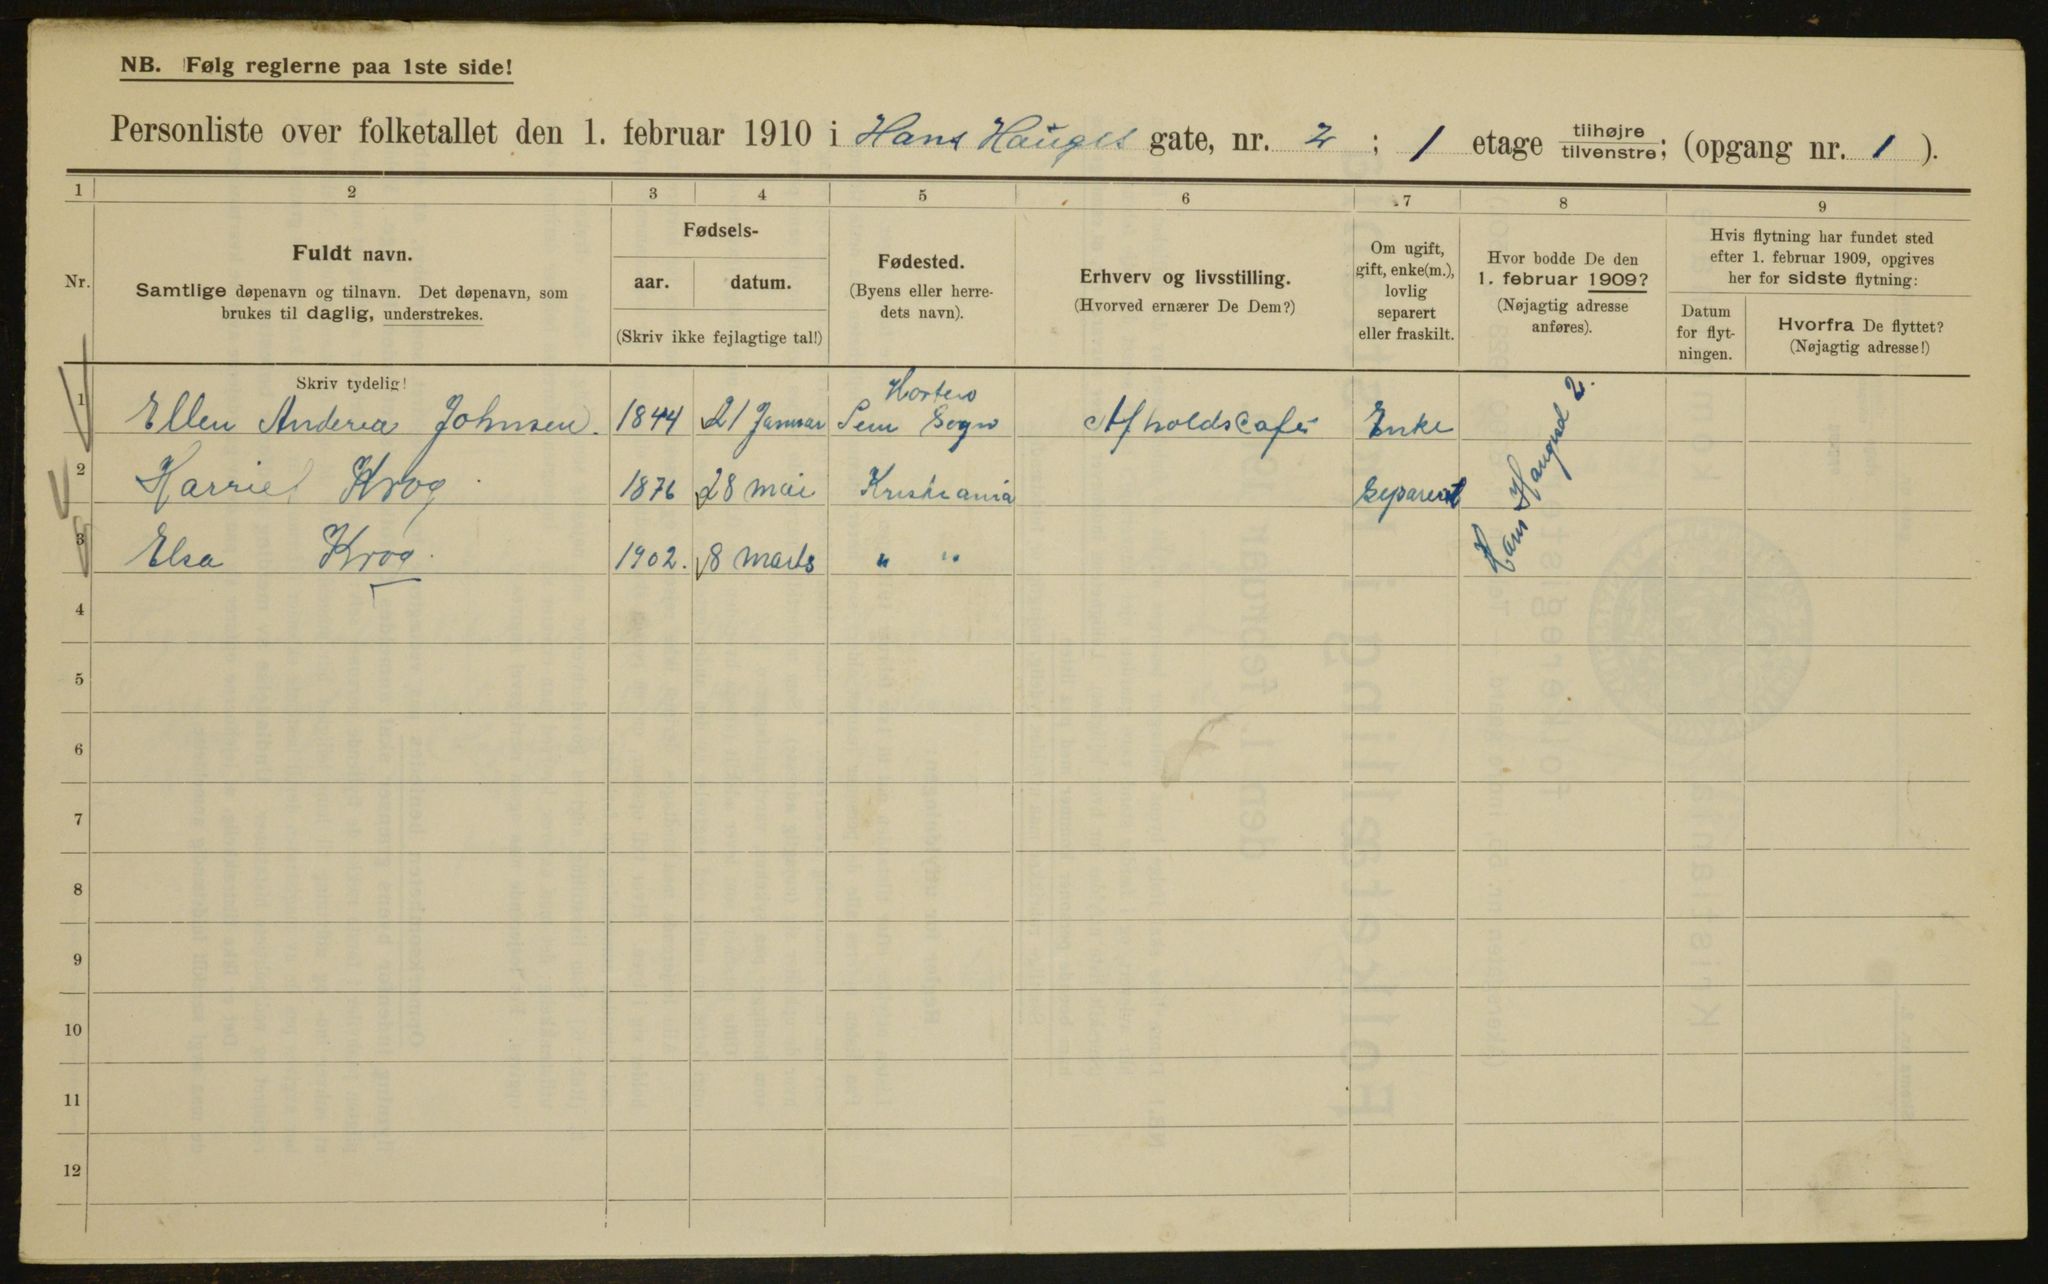 NB. Følg reglerne paa 1ste side!
Personliste over folketallet den 1. februar 1910 i Hans Hauges gate, nr. 2 ; 1 etage tilhøjre/tilvenstre; (opgang nr. 1 ).
1 2 3 4 5 6 7 8 9
Nr.
Fuldt navn.
Samtlige døpenavn og tilnavn. Det døpenavn, som
brukes til daglig, understrekes.
Fødsels-
aar. datum.
(Skriv ikke fejlagtige tal!)
Fødested.
(Byens eller herre-
dets navn).
Erhverv og livsstilling.
(Hvorved ernærer De Dem?)
Om ugift,
gift, enke(m.),
lovlig
separert
eller fraskilt.
Hvor bodde De den
1. februar 1909?
(Nøjagtig adresse
anføres).
Hvis flytning har fundet sted
efter 1. februar 1909, opgives
her for sidste flytning:
Datum
for flyt-
ningen.
Hvorfra De flyttet?
(Nøjagtig adresse!)
Skriv tydelig!
Horten
1 Ellen Anderea Johnsen. 1844 21 Januar Sem Sogn Afholdscafé Enke
2 Harriet Krog 1876 28 mai Kristiania Separert
3 Elsa Krog. 1902. 8 marts " "
Hans Haugesd 2.
4
5
6
7
8
9
10
11
12